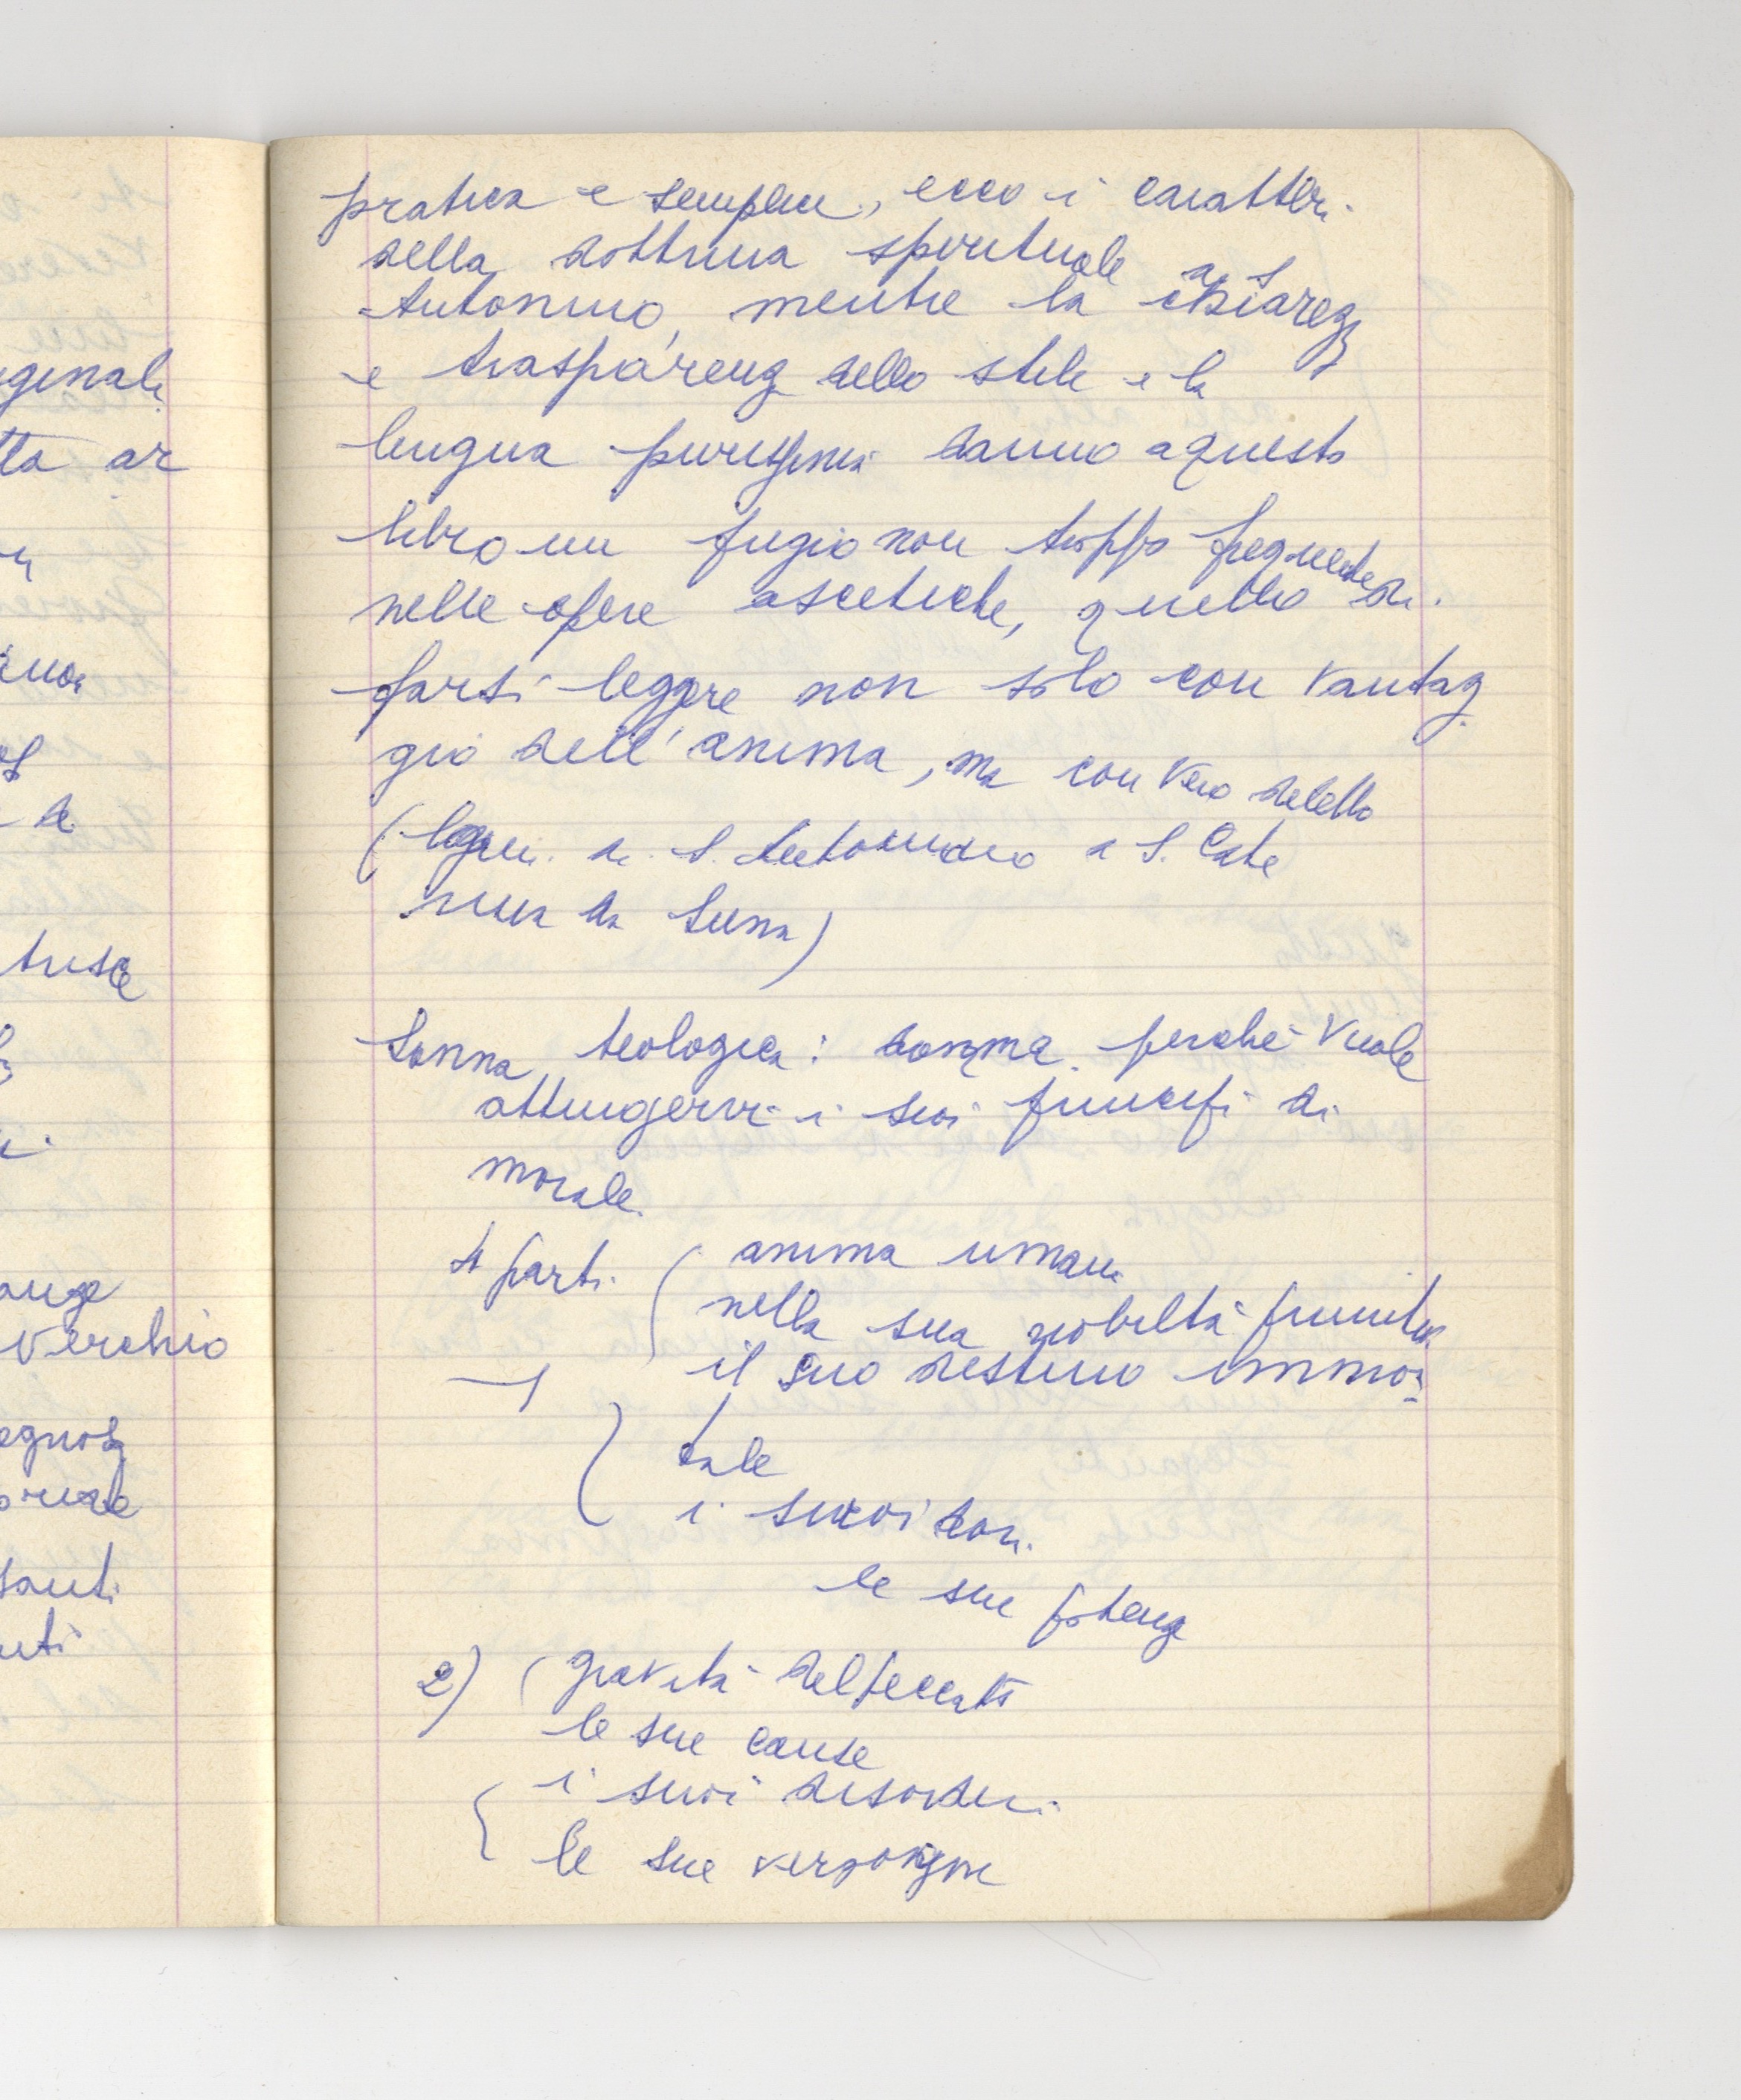 ginali
tta ar
Vecchio
santi
pratica e semplice, ecco i caratteri
della dottrina spirituale di S
Antonino, mentre la chiarezz
e trasparenz dello stile e la
lingua purissima danno a questo
libro un fregio non troppo frequente
nelle opere ascetiche, quello di
farsi leggere non solo con vantag
gio dell'anima, ma con vero diletto
(legami di S. Antonino a S. Cate
rina da Siena)
Somma teologica: domma perchè vuole
attingervi i suoi principi di
morale.
4 parti ( anima umana
nella sua nobiltà primitiva
1 il suo destino immor
tale
i suoi doni
le sue potenz
2) ( gravità del peccato
le sue cause
i suoi disordini
le sue vergogne